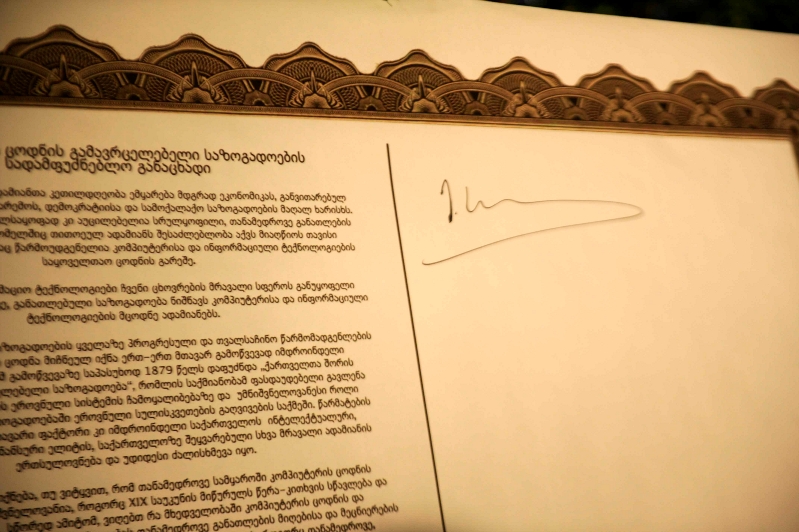 ცოდნის გამავრცელებელი საზოგადოების
სადამფუძნებლო განაცხადი
კეთილდღეობა ემყარება მდგრად ეკონომიკას, განვითარებულ
დემოკრატიისა და სამოქალაქო საზოგადოების მაღალ ხარისხს.
კი აუცილებელია სრულყოფილი, თანამედროვე განათლების
თითოეულ ადამიანს შესაძლებლობა აქვს მიაღწიოს თავისი
წარმოუდგენელია კომპიუტერისა და ინფორმაციული ტექნოლოგიების
საყოველთაო ცოდნის გარეშე.
ტექნოლოგიები ჩვენი ცხოვრების მრავალი სფეროს განუყოფელი
განათლებული საზოგადოება ნიშნავს კომპიუტერისა და ინფორმაციული
ტექნოლოგიების მცოდნე ადამიანებს.
ყველაზე პროგრესული და თვალსაჩინო წარმომადგენლების
ცოდნა მიჩნეულ იქნა ერთ-ერთ მთავარ გამოწვევად იმდროინდელი
გამოწვევაზე საპასუხოდ 1879 წელს დაფუძნდა „ქართველთა შორის
საზოგადოება“, რომლის საქმიანობამ ფასდაუდებელი გავლენა
ეროვნული სისტემის ჩამოყალიბებაზე და უმნიშვნელოვანესი როლი
ეროვნული სულისკვეთების გაღვივების საქმეში. წარმატების
ფაქტორი კი იმდროინდელი საქართველოს ინტელექტუალური,
ელიტის, საქართველოზე შეყვარებული სხვა მრავალი ადამიანის
ერთსულოვნება და უდიდესი ძალისხმევა იყო.
თუ ვიტყვით, რომ თანამედროვე სამყაროში კომპიუტერის ცოდნის
როგორც XIX საუკუნის მიწურულს წერა-კითხვის სწავლება და
სწორედ ამიტომ, ვიღებთ რა მხედველობაში კომპიუტერის ცოდნის და
თანამედროვე განათლების მიღებისა და მეცნიერების